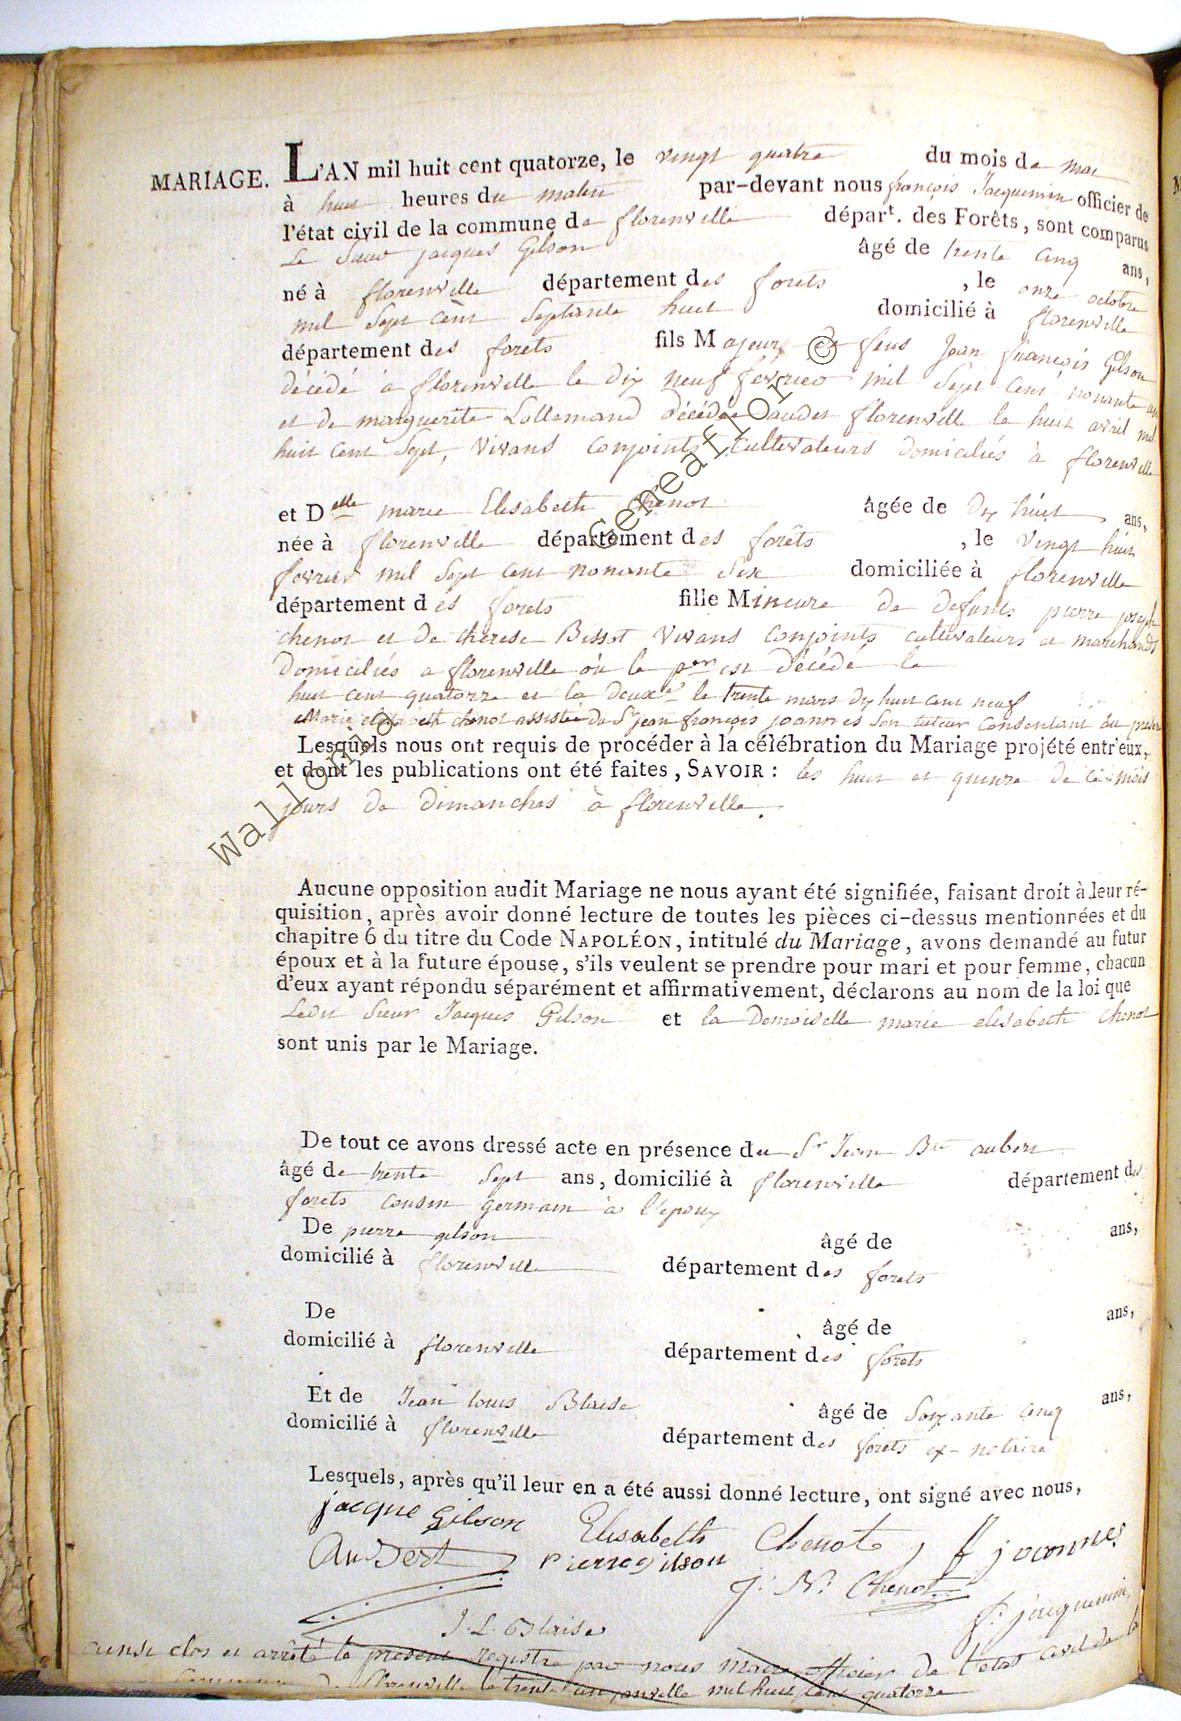 MARIAGE. L'AN mil huit cent quatorze, le vingt quatre du mois de mai
à huit heures du matin par-devant nous françois Jacquemin officier de
l'état civil de la commune de florenville départ. des Forêts, sont comparus
Le Sieur jacques Gilson âgé de trente cinq ans,
né à florenville département des forets, le onze octobre
mil Sept cent Septante huit domicilié à florenville
département des forets fils Majeur de feus Jean françois Gilson
décédé à florenville le dix neuf février mil Sept Cent nonante un
et de marguerite Lallemand décédée audit florenville le huit avril mil
huit cent Sept, vivans conjoints cultivateurs domiciliés à florenville
et Delle marie Elisabeth Chenot âgée de dix huit ans,
née à florenville département des forêts, le vingt huit
fevrier mil Sept cent nonante Six domiciliée à florenville
département des forets fille Mineure de defunts pierre joseph
chenot et de therese Bissot vivans conjoints cultivateurs et marchands
Domiciliés a florenville où le per est décédé le
huit cent quatorze et la deuxe le trente mars dix huit cent neuf
Marie elisabeth chenot assistée du Sr jean françois joannes Son tuteur consentant au présent
Lesquels nous ont requis de procéder à la célébration du Mariage projété entr'eux,
et dont les publications ont été faites, SAVOIR : les huit et quinze de ce mois
jours de dimanches à florenville.
Aucune opposition audit Mariage ne nous ayant été signifiée, faisant droit à leur ré-
quisition, après avoir donné lecture de toutes les pièces ci-dessus mentionnées et du
chapitre 6 du titre du Code NAPOLÉON, intitulé du Mariage, avons demandé au futur
époux et à la future épouse, s'ils veulent se prendre pour mari et pour femme, chacun
d'eux ayant répondu séparément et affirmativement, déclarons au nom de la loi que
Ledit Sieur Jacques Gilson et la Demoiselle marie elisabeth Chenot
sont unis par le Mariage.
De tout ce avons dressé acte en présence du Sr Jean Bte aubert
âgé de trente Sept ans, domicilié à florenville département des
forets cousin germain à l'époux
De pierre gilson âgé de ans,
domicilié à florenville département des forets
De âgé de ans,
domicilié à florenville département des forets
Et de Jean louis Blaise âgé de Soixante cinq ans,
domicilié à florenville département des forets ex-notaire
Lesquels, après qu'il leur en a été aussi donné lecture, ont signé avec nous,
jacque Gilson Elisabeth Chenot J f joannes
Aubert Pierre Gilson J. N. Chenot
J. L. Blaise f. jacquemin
ainsi clos et arrêté le present registre par nous maire officier de l'état civil de la
Commune de florenville le trente un mil huit cent quatorze
Wallonia Geneaflor ©